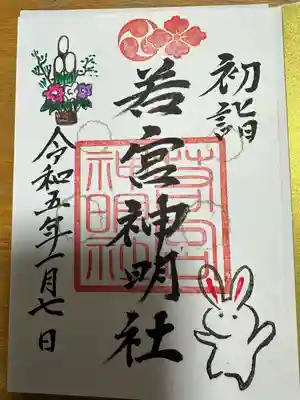 初詣
若宮神明社
令和五年一月七日
若宮神明社